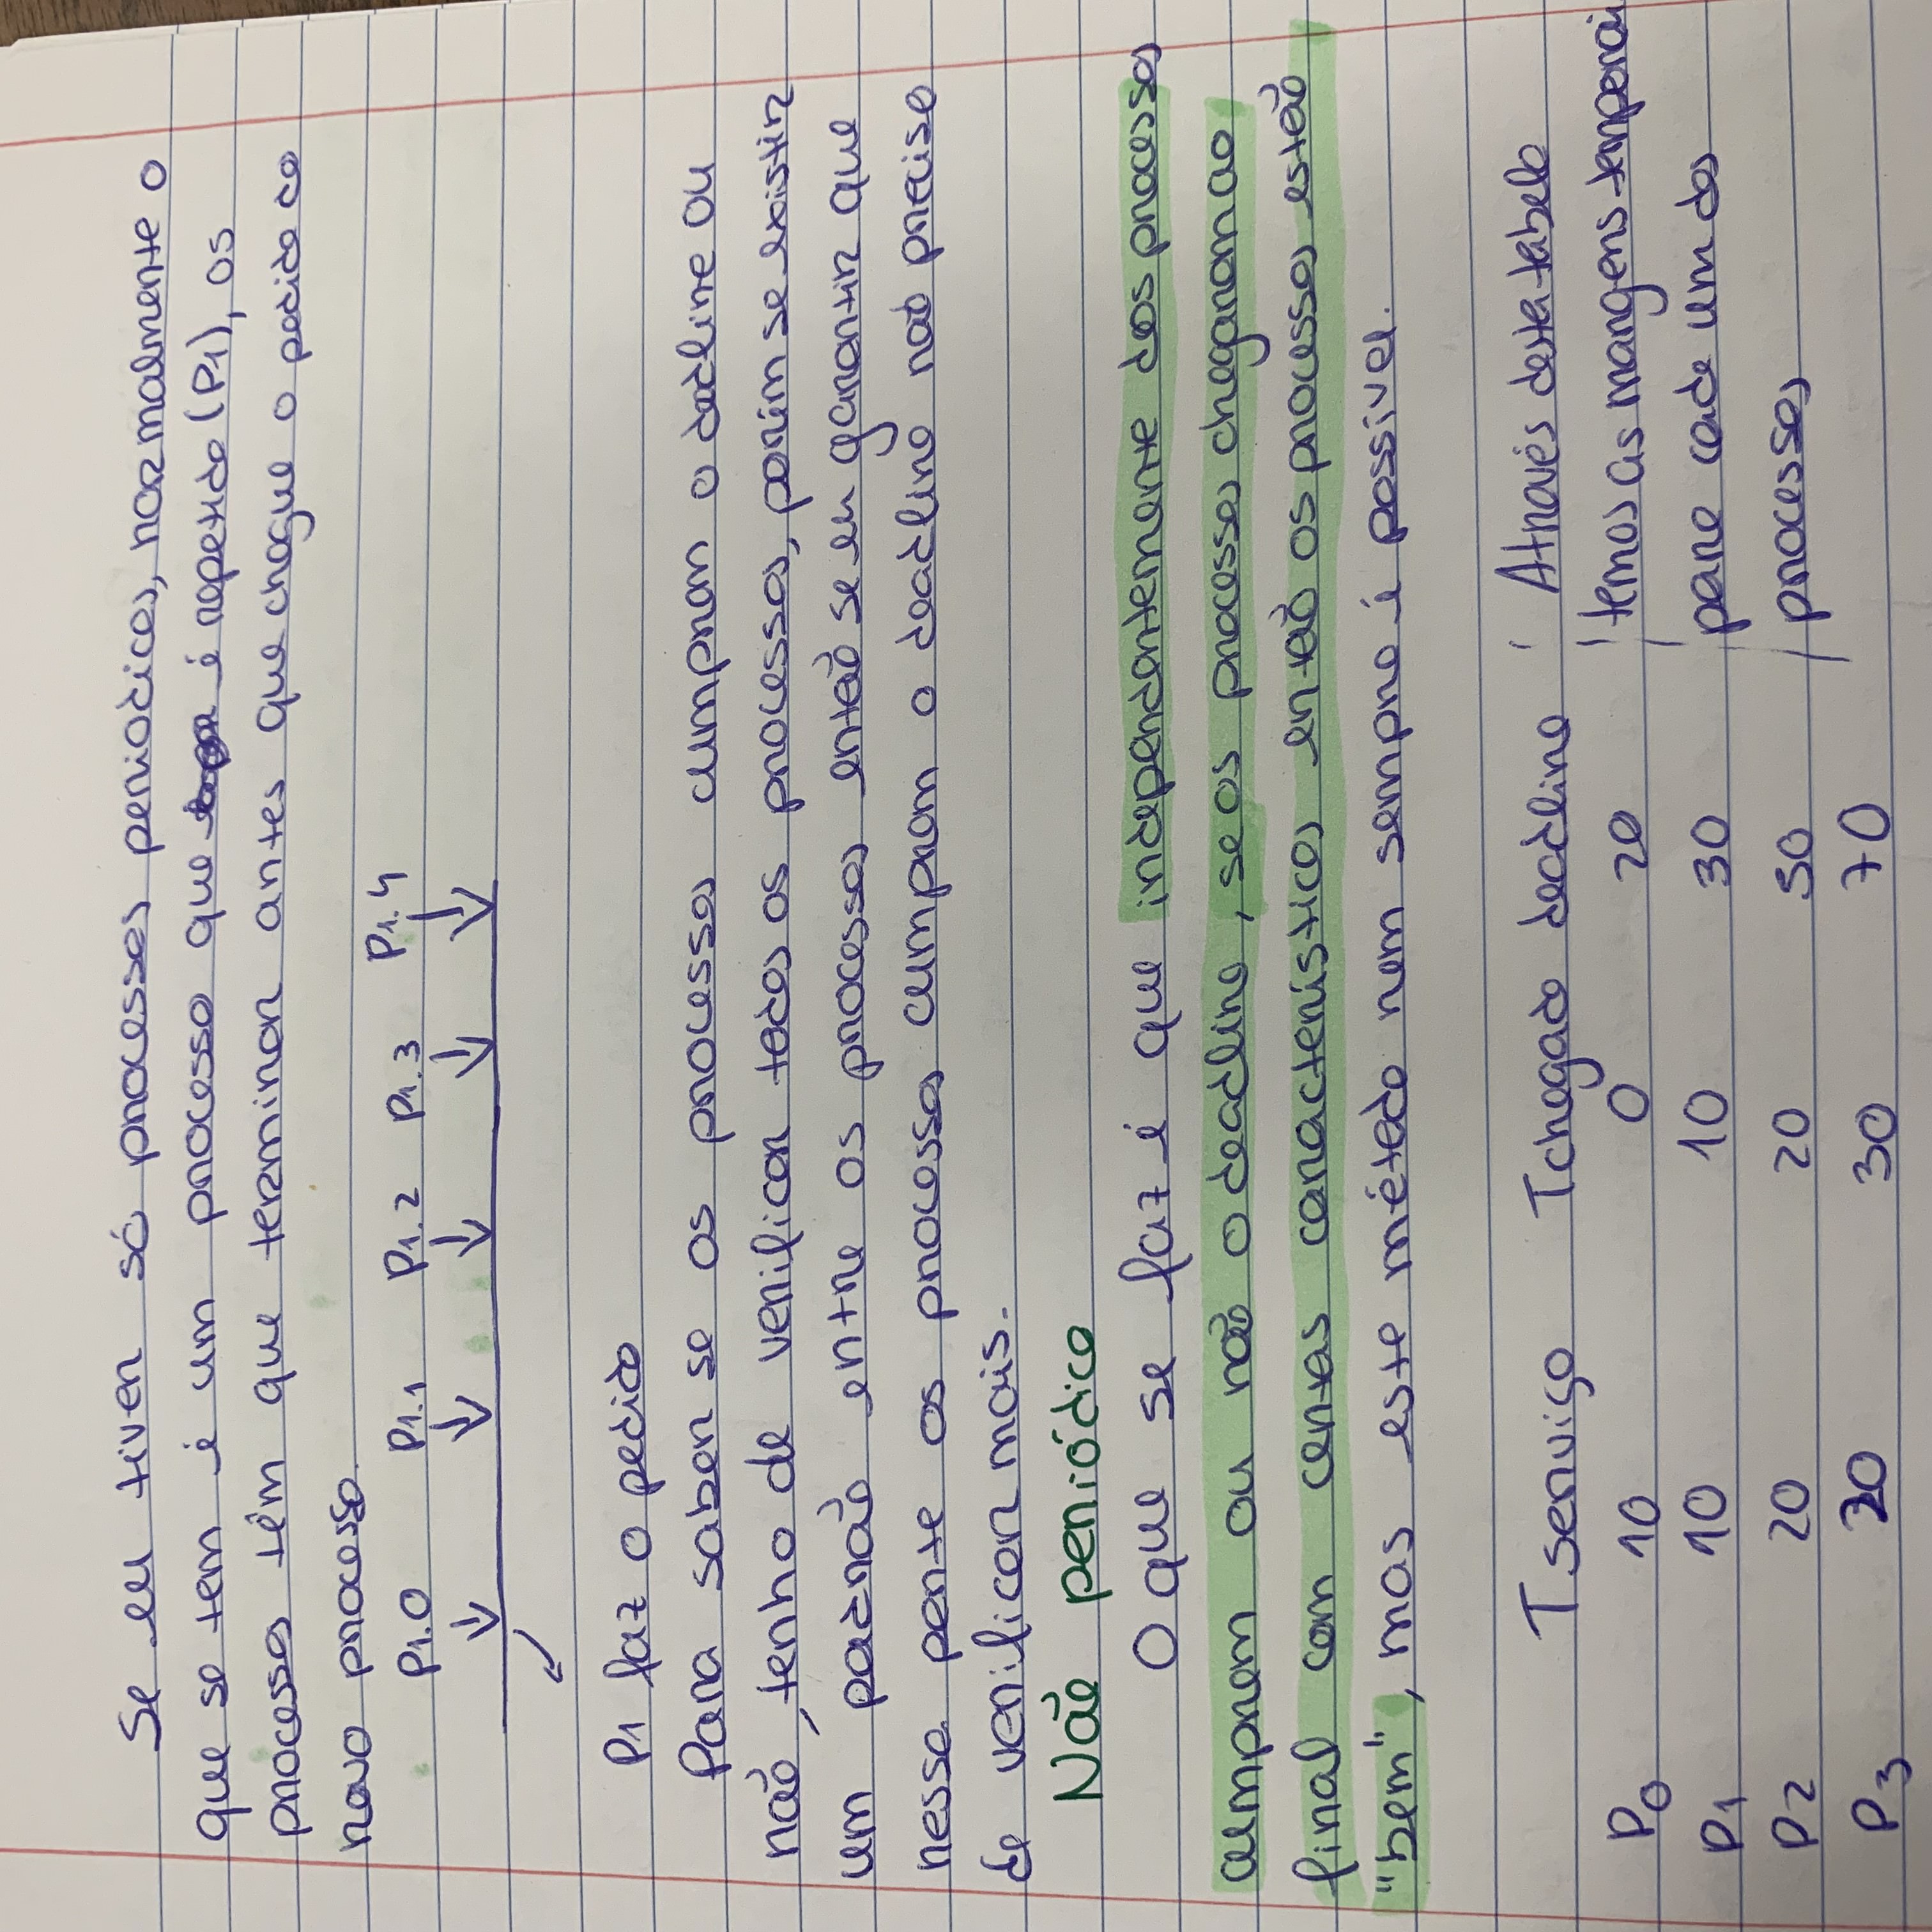 Se eu tiver só processos periodicos, normalmente o
que se tem é um processo que é repetido (P1), os
processos têm que terminar antes que chegue o pedido do
novo processo.
P1.0 P1.1 P1.2 P1.3 P1.4
P1 faz o pedido
Para saber se os processos cumprem o deadline ou
não, tenho de verificar todos os processos, porém se existir
um padrão entre os processos então se eu garantir que
nesse ponto os processos cumprem o deadline não preciso
de verificar mais.
Não periódico
O que se faz é que independentemente dos processos
cumprem ou não o deadline, se os processos chegarem ao
final com certas características então os processos estão
"bem", mas este método nem sempre é possível.
Tserviço Tchegada deadline Através desta tabela
P0 10 0 20 temos as margens temporai
P1 10 10 30 para cada um dos
P2 20 20 50 processos
P3 20 30 70